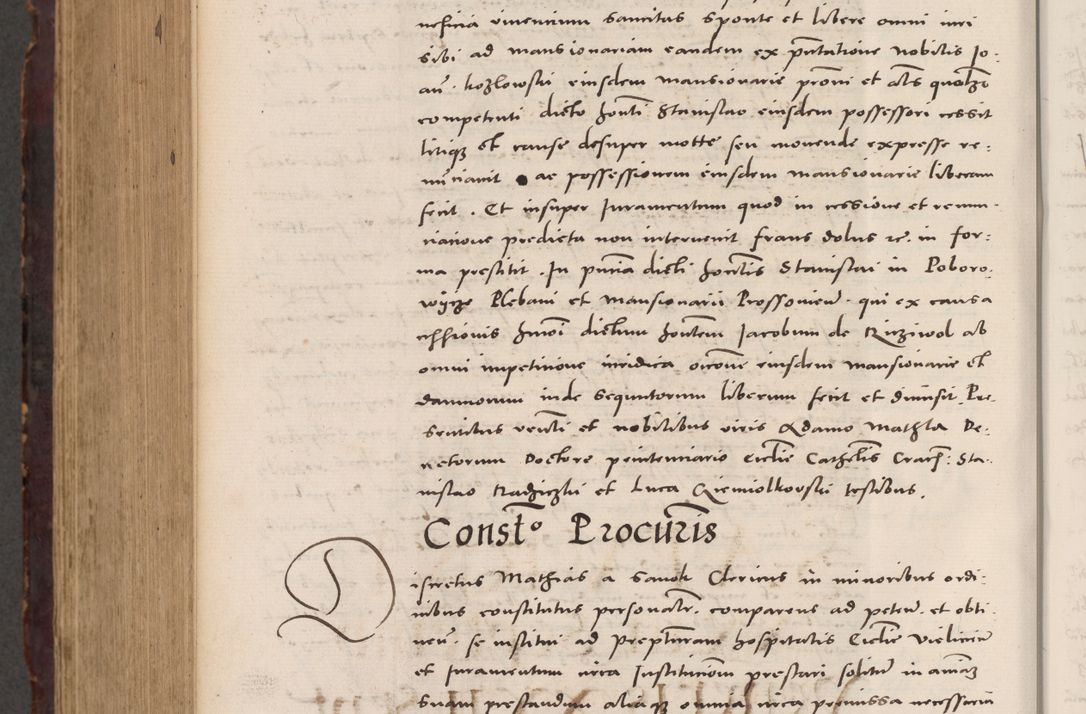 neficia viventium sancitas sponte et libere omni iuri
sibi ad mansionariam eandem ex pñtatione nobilis Jo:
añ. kozlowski eiusdem mansionarie prõni et als
competenti dicto honsti Stanislao eiusdem possessori cessit
litiqz et cause desuper motte seu movende expresse re:
nunciavit ac possessionem eiusdem mansionarie liberam
fecit. Et insuper Juramentum quod in cessione et renun-
ciatione predicta non intervenit fraus dolus rc. in for:
ma prestitit. In pñcia dicti Stanislai in Poboro.
wycze Plebani et mansionarii Prossovien. qui ex causa
cessionis hmõi dictum Jacobum de ab
omni impetitione iuridica eiusdem mansionarie et
damnorum inde sequutorum liberum fecit et dimisit. Pre-
sentibus et nobilibus viris Adamo Mathia De:
cretorum Doctore penitenciario Ecclie Cathēlis Cracoñ: Sta-
nislao et Luca testibus.
Constõ Procuris
Discretus Mathias a Sanok Clericus in minoribus ordi:
nibus constitutus personalr. comparens ad peteñ. et obti-
neñ. se institui ad Preptúram hospitalis Ecclie Vielicieñ
et Juramentum circa Institucionem prestari solitũ in aniaz
suam prestandum aliaqz omnia circa premissa necessaria